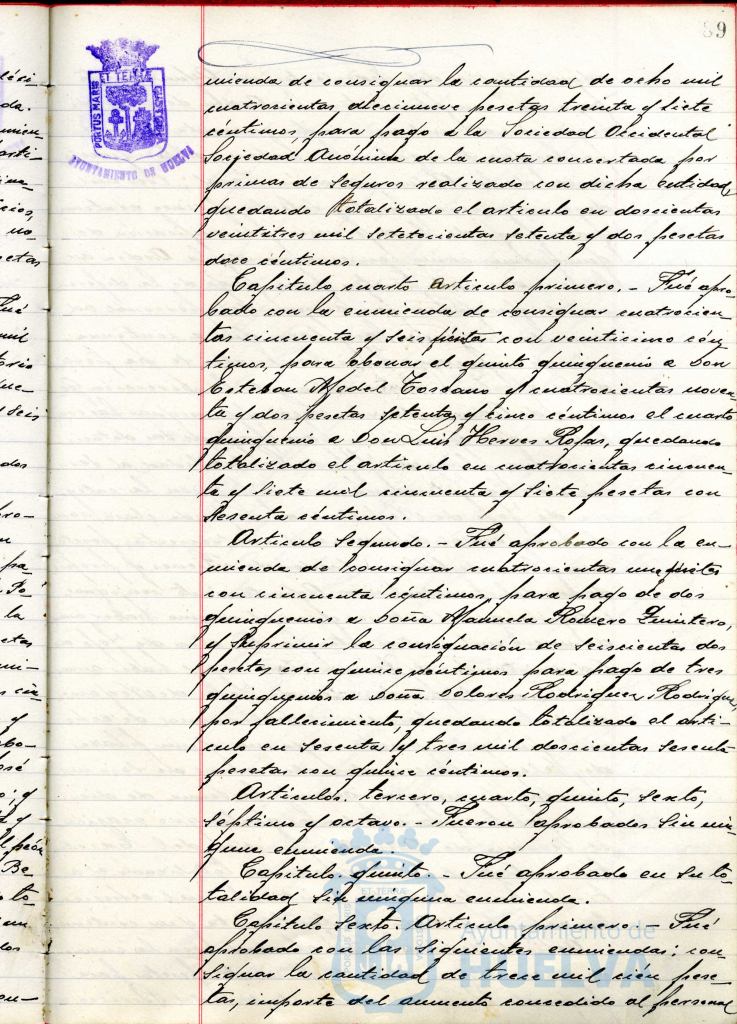 89
PORTUS MARIS
ET TERRÆ
AYUNTAMIENTO DE HUELVA
mienda de consignar la cantidad de ocho mil
cuatrocientas diecinueve pesetas treinta y siete
céntimos, para pago a la Sociedad Occidental
Sociedad Anónima de la cuota concertada por
primas de seguros realizado con dicha entidad,
quedando totalizado el articulo en doscientas
veintitres mil setetocientas setenta y dos pesetas
doce céntimos.
Capitulo cuarto articulo primero. - Fué apro-
bado con la enmienda de consignar cuatrocien-
tas cincuenta y seis pesetas con veinticinco cén-
timos, para abonar el quinto quinquenio a Don
Esteban Medel Toscano y cuatrocientas noven-
ta y dos pesetas setenta y cinco céntimos el cuarto
quinquenio a Don Luis Herves Rofas, quedando
totalizado el articulo en cuatrocientas cincuen-
ta y siete mil cincuenta y siete pesetas con
sesenta céntimos.
Articulo segundo. - Fué aprobado con la en-
mienda de consignar cuatrocientas una pesetas
con cincuenta céntimos, para pago de dos
quinquenios a Doña Manuela Romero Quintero,
y suprimir la consignación de seiscientas dos
pesetas con quince céntimos para pago de tres
quinquenios a Doña Dolores Rodriguez Rodriguez,
por fallecimiento, quedando totalizado el arti-
culo en sesenta y tres mil doscientas sesenta
pesetas con quince céntimos.
Articulos. tercero, cuarto, quinto, sexto,
séptimo y octavo. - Fueron aprobados sin nin-
guna enmienda.
Capitulo quinto. - Fué aprobado en su to-
talidad sin ninguna enmienda.
Capitulo sexto. Articulo primero. - Fué
aprobado con las siguientes enmiendas: con-
signar la cantidad de trece mil cién pese-
tas, importe del aumento concedido al personal
Ayuntamiento de
HUELVA